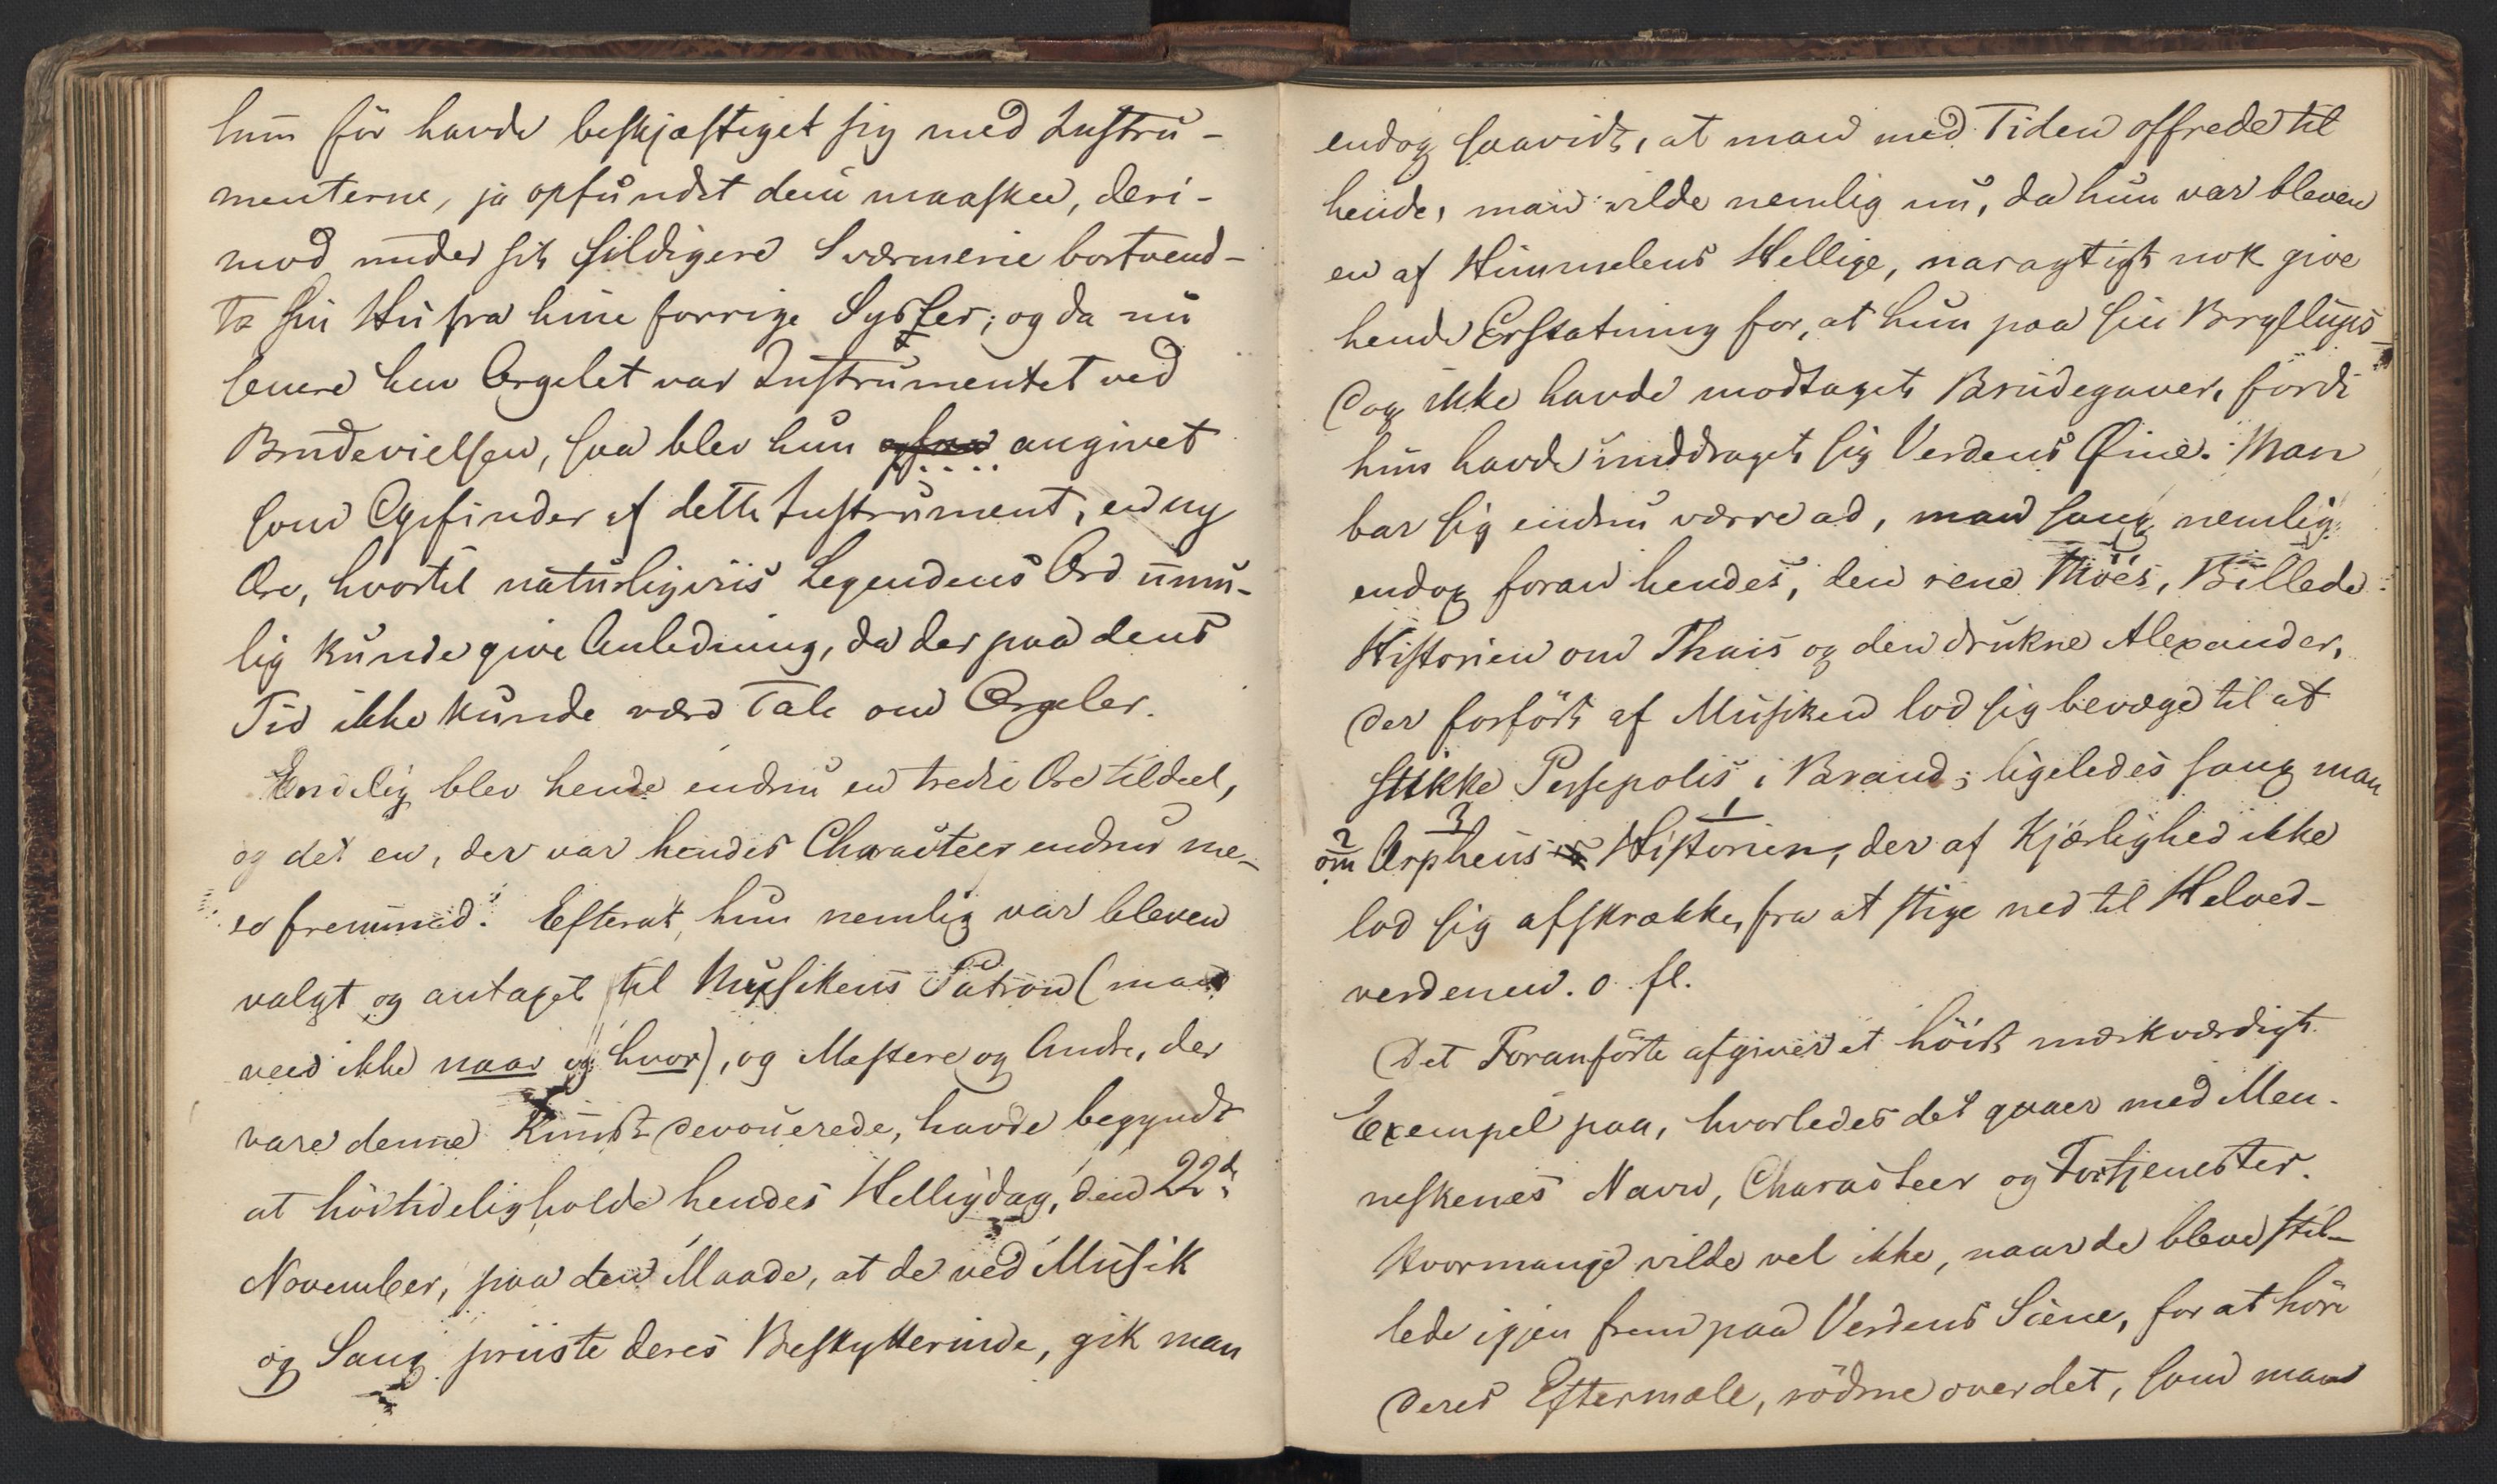 hun för havde beskjæftiget sig med Instru-
menterne, ja opfundet dem maaskee, deri-
mod under sit sildigere Sværmerie bortvend-
te sin Hu fra hine forrige Sysler; og da nu
senere hen Orgelet var Instrumentet ved
Brudevielsen, saa blev hun angivet
som Opfinder af dette Instrument, en ny
Ære, hvortil naturligviis Legendens Ord umu-
lig kunde give Anledning, da der paa dens
Tid ikke kunde være Tale om Orgeler.
Endelig blev hende endnu en tredie Ære tildeel,
og det en, der var hendes Characteer endnu me-
er fremmed. Efterat hun nemlig var bleven
valgt og antaget til Musikens Patron (man
veed ikke naar og hvor), og Mestere og Andre, der
vare denne Kunst devouerede, havde begyndt
at höitideligholde hendes Helligdag, den 22de
November, paa den Maade, at de ved Musik
og Sang priiste deres Beskytterinde, gik man
endog saavidt, at man med Tiden offrede til
hende, man vilde nemlig nu, da hun var bleven
en af Himmelens Hellige, naragtigt nok give
hende Erstatning for, at hun paa sin Bryllups-
dag ikke havde modtaget Brudegaver, fordi
hun havde unddraget sig Verdens Øine. Man
bar sig endnu værre ad, man sang nemlig
endog foran hendes, den rene Möes, Billede
Historien om Thais og den drukne Alexander,
der forfört af Musiken lod sig bevæge til at
stikke Persepolis i Brand; ligeledes sang man
2 3 1
om Orpheus Historien, der af Kjærlighed ikke
lod sig afskrække, fra at stige ned til Helved-
verdenen. o. fl.
Det Foranförte afgiver et höist mærkværdigt
Exempel paa, hvorledes det gaaer med Men-
neskenes Navn, Characteer og Fortjenester.
Hvormange vilde vel ikke, naar de bleve stil-
lede igjen frem paa Verdens Scene, for at höre
deres Eftermæle, rödme over det, som man